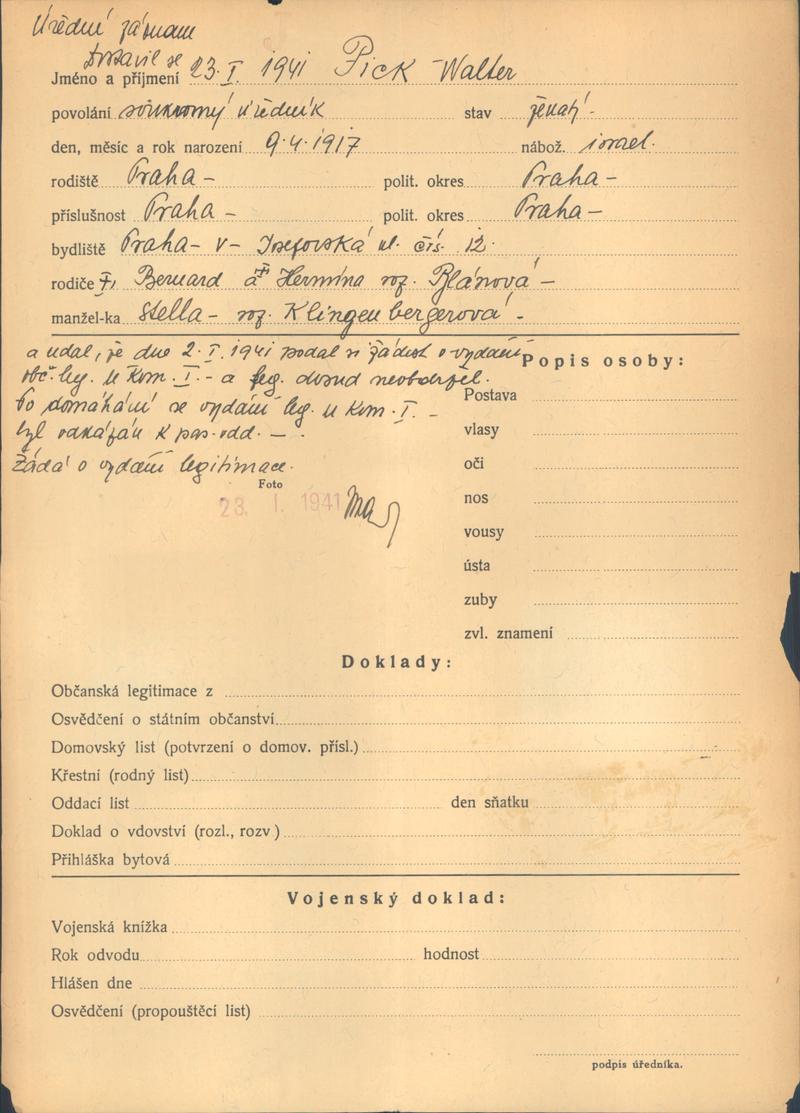 Úřední záznam
dostavil se
Jméno a příjmení 23. I. 1941 Pick Walter
povolání soukromý úředník stav ženatý -
den, měsíc a rok narození 9.4.1917 nábož. israel.
rodiště Praha - polit. okres Praha -
příslušnost Praha - polit. okres Praha -
bydliště Praha - V - Josefovská ul. čís. 12.
rodiče Bernard a Hermina roz. Blánová -
manžel-ka Stella - roz. Klingenbergerová -
a udal, že dne 2. I. 1941 podal si žádost o vydání
obč. leg. u kom. I. - a leg. dosud neobdržel.
Po domáhání se vydání leg. u kom. I. -
byl odkázán k pas. odd. -.
Žádá o vydání legitimace.
Popis osoby:
Postava
vlasy
oči
Foto
23. I. 1941
nos
vousy
ústa
zuby
zvl. znamení
Doklady:
Občanská legitimace z
Osvědčení o státním občanství
Domovský list (potvrzení o domov. přísl.)
Křestní (rodný list)
Oddací list den sňatku
Doklad o vdovství (rozl., rozv )
Přihláška bytová
Vojenský doklad:
Vojenská knížka
Rok odvodu hodnost
Hlášen dne
Osvědčení (propouštěcí list)
podpis úředníka.